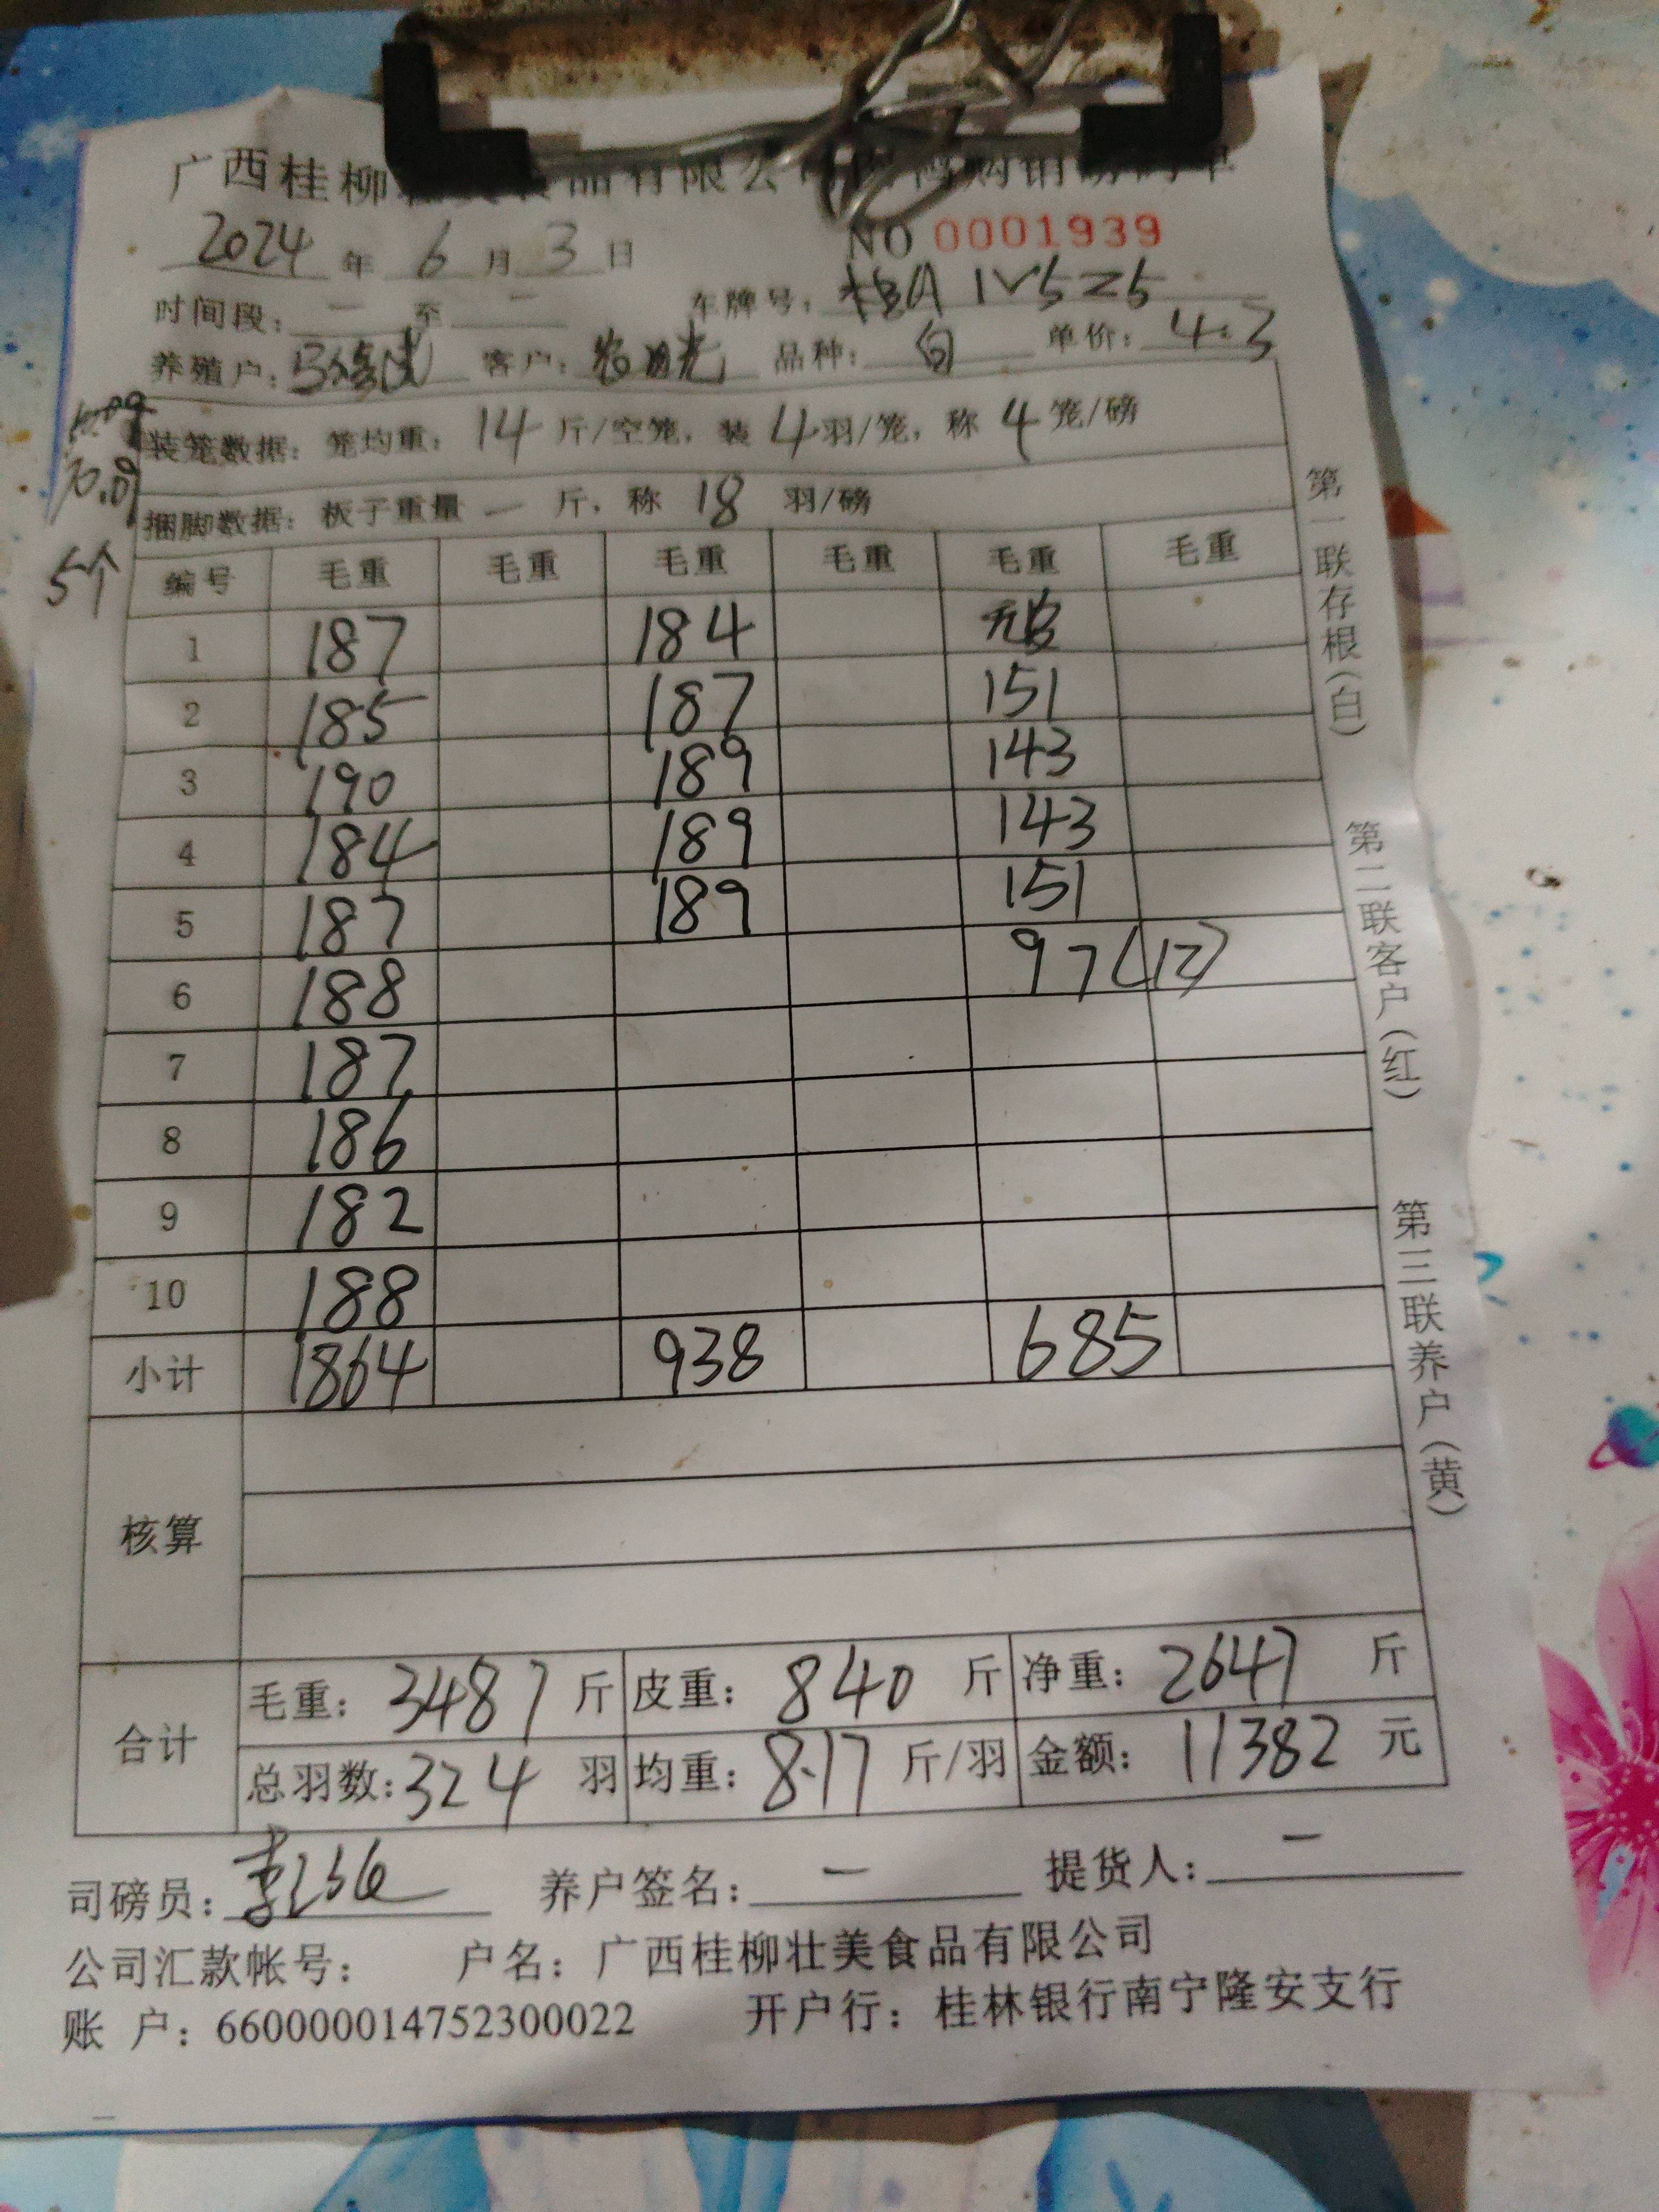 广西桂柳
2024 年 6 月 3 日 NO 0001939
时间段: 一 至 一 车牌号: 桂A 1V5Z5
养殖户: 客户: 农明光 品种: 白 单价: 4.3
装笼数据: 笼均重: 14 斤/空笼, 装 4 羽/笼, 称 4 笼/磅
捆脚数据: 板子重量 一 斤, 称 18 羽/磅
5个
编号 毛重 毛重 毛重 毛重 毛重 毛重
1 187 184 无皮
2 185 187 151
3 190 189 143
4 184 189 143
5 187 189 151
6 188 97(12)
7 187
8 186
9 182
10 188
小计 1864 938 685
核算
合计 毛重: 3487 斤 皮重: 840 斤 净重: 2647 斤
总羽数: 324 羽 均重: 8.17 斤/羽 金额: 11382 元
司磅员: 养户签名: 一 提货人: 一
公司汇款帐号: 户名: 广西桂柳壮美食品有限公司
账 户: 660000014752300022 开户行: 桂林银行南宁隆安支行
第一联存根(白)
第二联客户(红)
第三联养户(黄)